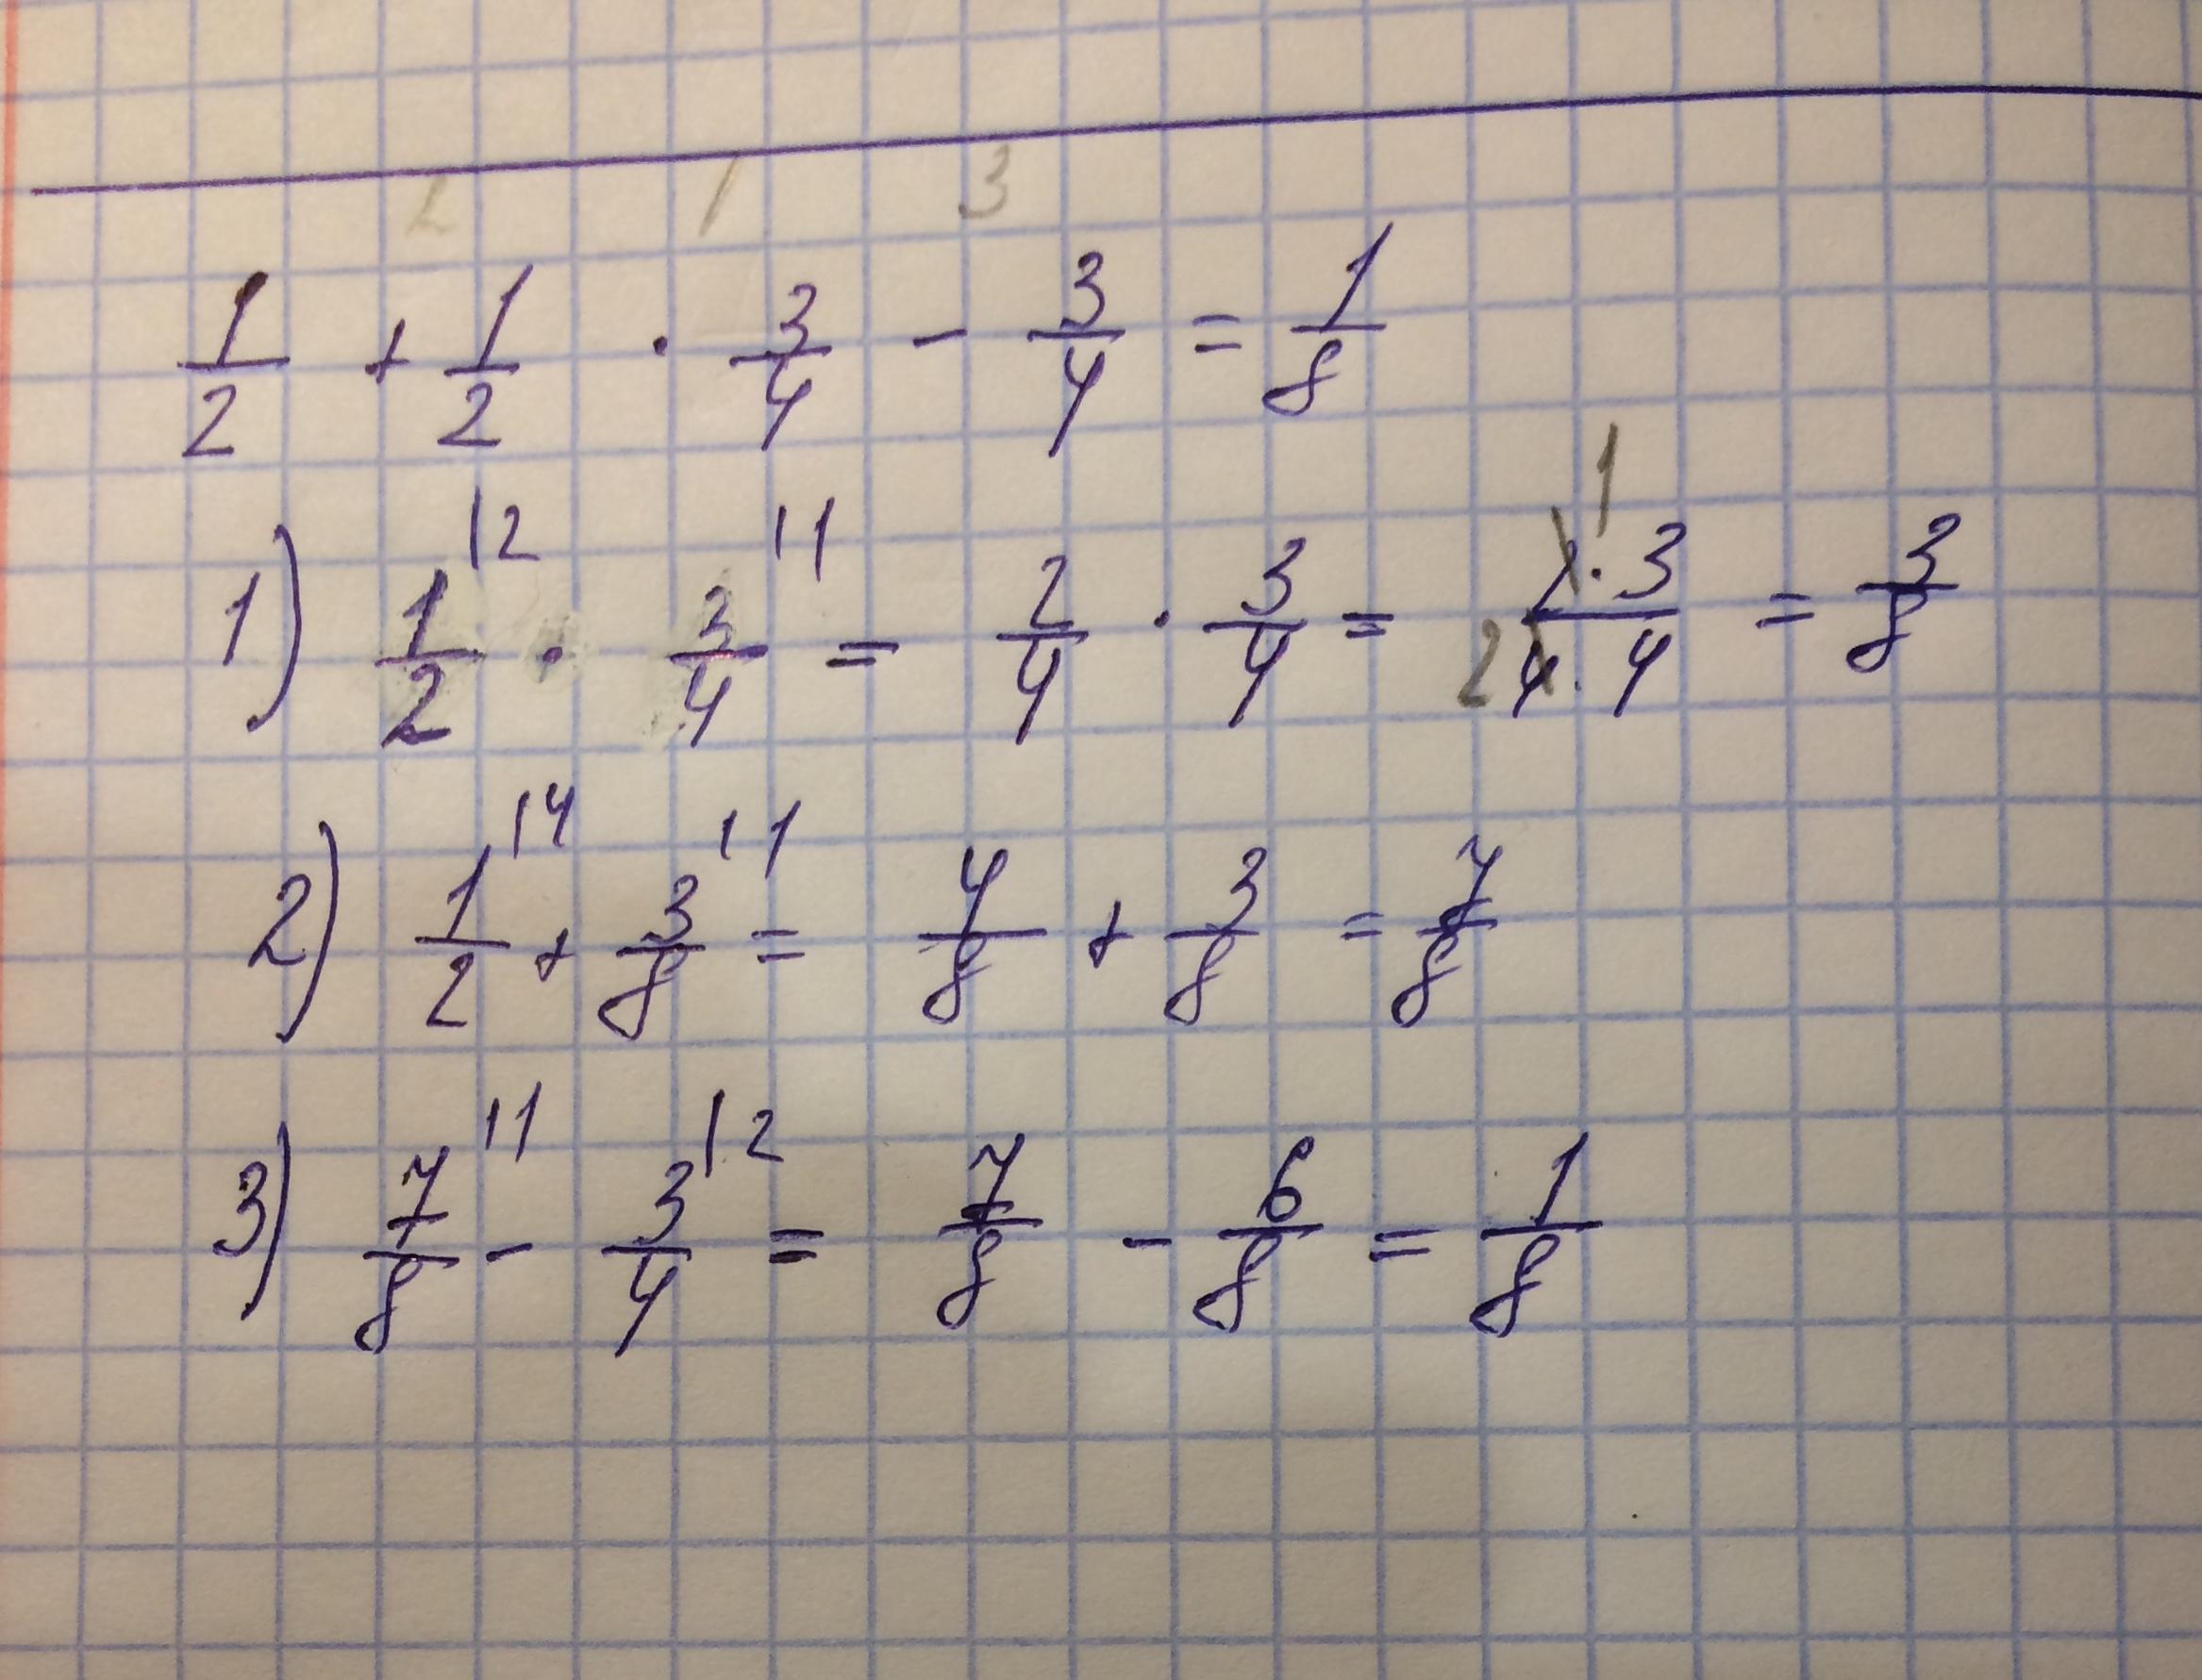 2 1 3
1/2 + 1/2 · 3/4 - 3/4 = 1/8
1) 1/2 |2 · 3/4 |1 = 2/4 · 3/4 = 2 · 3 / 4 · 4 1 2 = 3/8
2) 1/2 |4 + 3/8 |1 = 4/8 + 3/8 = 7/8
3) 7/8 |1 - 3/4 |2 = 7/8 - 6/8 = 1/8